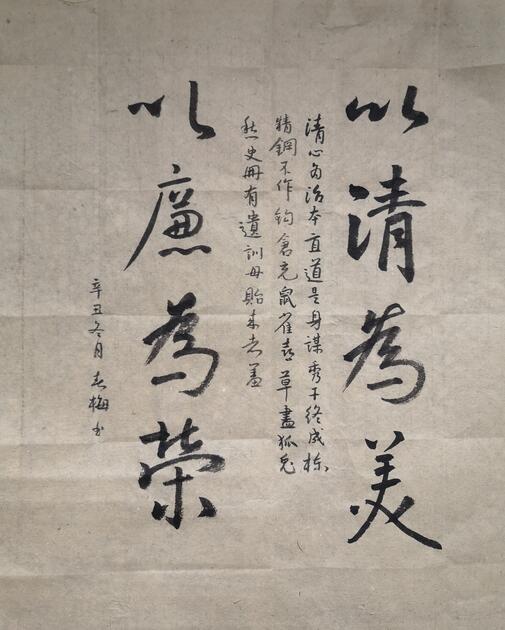 以清為美
清心為治本直道是身謀秀干终成栋
精鋼不作鈎倉充鼠雀喜草盡狐兔
愁史冊有遺訓毋貽來者羞
以廉為榮
辛丑冬月春梅书